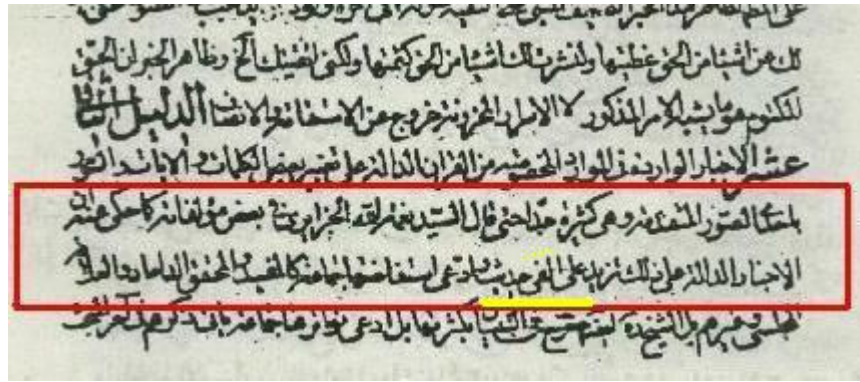 لك عن اشياء من الحق غطيتها ولنشرت لك اشياء من الحق كتمتها ولكنى اتقيتك الخ وظاهر الخبر ان الحق
المكتوم هو ما يشبه الامر المذكور لا الاسرار المخزونة خروج عن الاستقامة والانصاف الدليل الثانى
عشر الاخبار الواردة فى الموارد المخصوصة من القران الدالة على تغيير بعض الكلمات والايات والسور
باحدى الصور المتقدمة وهى كثيرة جدا حتى قال السيد نعمة الله الجزايرى فى بعض مؤلفاته كما حكى عنه ان
الاخبار الدالة على ذلك تزيد على الفى حديث وادعى استفاضتها جماعة كالمفيد والمحقق الداماد والعلامة
المجلسى وغيرهم بل الشيخ ايضا صرح فى التبيان بكثرتها بل ادعى تواترها جماعة ياتى ذكرهم فى اخر المبحث